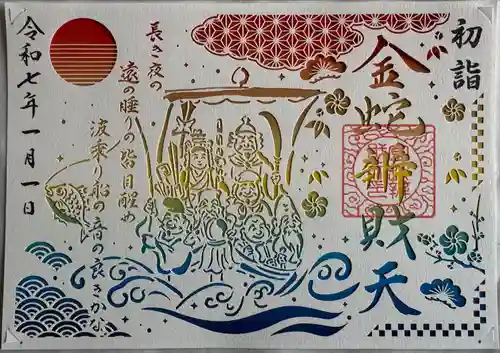 初詣
金蛇辨財天
長き夜の
遠の睡りの皆目醒め
波乗り船の音の良きかな
令和七年一月一日